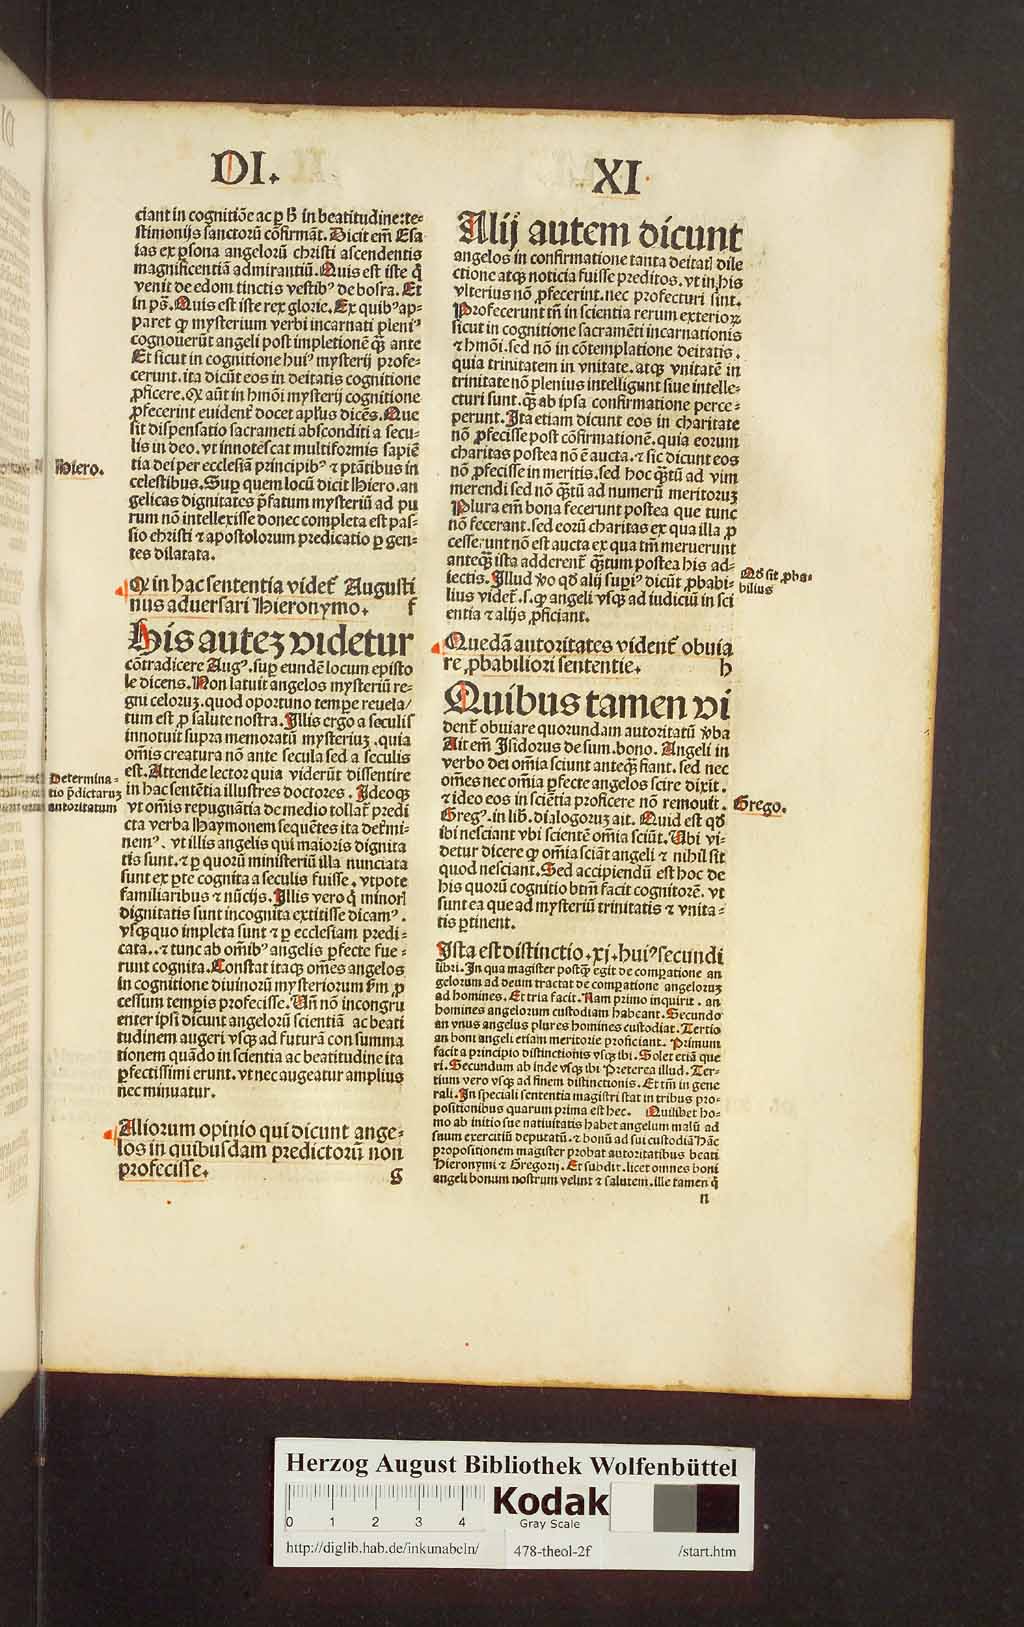 DI.
XI
ciant in cognitiōe ac ꝑ ħ in beatitudine:te=
stimonijs sanctorū cōfirmāt. Dicit em̄ Esa
ias ex ꝑsona angelorū christi ascendentis
magnificentiā admirantiū. Quis est iste q̄
venit de edom tinctis vestibꝰ de bosra. Et
in ps̄. Quis est iste rex glorie. Ex quibꝰ ap=
paret ꝙ mysterium verbi incarnati pleniꝰ
cognouerūt angeli post impletionē q̄ꝫ ante
Et sicut in cognitione huiꝰ mysterij profe=
cerunt. ita dicūt eos in deitatis cognitione
ꝓficere. Qꝙ aūt in hmōi mysterij cognitione
ꝓfecerint euident̄ docet apl̄us dicēs. Que
sit dispensatio sacrameti absconditi a secu=
lis in deo. vt innotescat multiformis sapiē
tia dei per ecclesiā principibꝰ ⁊ ptātibus in
celestibus. Suꝑ quem locū dicit Hiero. an
gelicas dignitates p̄fatum mysteriū ad pu
rum nō intellexisse donec completa est pas=
sio christi ⁊ apostolorum predicatio ꝑ gen=
tes dilatata.
Hiero.
Qꝙ in hac sententia videt̄ Augusti
nus aduersari Hieronymo. f
His auteꝫ videtur
cōtradicere Augꝰ. suꝑ eundē locum episto
le dicens. Non latuit angelos mysteriū re=
gni celoruꝫ. quod oportuno tempe reuela/
tum est ꝓ salute nostra. Illis ergo a seculis
innotuit supra memoratū mysteriuꝫ. quia
om̄is creatura nō ante secula sed a seculis
est. Attende lector quia viderūt dissentire
in hac sentētia illustres doctores. Ideoqꝫ
vt om̄is repugnātia de medio tollat̄ predi
cta verba Haymonem sequētes ita det̄mi=
nemꝰ. vt illis angelis qui maioris dignita
tis sunt. ⁊ ꝑ quorū ministeriū illa nunciata
sunt ex ꝑte cognita a seculis fuisse. vtpote
familiaribus ⁊ nūcijs. Illis vero q̄ minorꝭ
dignitatis sunt incognita extitisse dicamꝰ.
vsqꝫquo impleta sunt ⁊ ꝑ ecclesiam predi=
cata. ⁊ tunc ab om̄ibꝰ angelis ꝑfecte fue=
runt cognita. Constat itaqꝫ om̄es angelos
in cognitione diuinorū mysteriorum s̄m ꝓ
cessum tempis profecisse. Un̄ nō incongru
enter ipsi dicunt angelorū scientiā ac beati
tudinem augeri vsqꝫ ad futurā consumma
tionem quādo in scientia ac beatitudine ita
ꝑfectissimi erunt. vt nec augeatur amplius
nec minuatur.
Determina=
tio p̄dictaruꝫ
autoritatum
Aliorum opinio qui dicunt ange=
los in quibusdam predictorū non
profecisse. g
Alij autem dicunt
angelos in confirmatione tanta deitatꝭ dile
ctione atqꝫ noticia fuisse preditos. vt in his
vlterius nō ꝓfecerint. nec profecturi sint.
Profecerunt tn̄ in scientia rerum exterioꝝ
sicut in cognitione sacramēti incarnationis
⁊ hmōi. sed nō in cōtemplatione deitatis.
quia trinitatem in vnitate. atqꝫ vnitatē in
trinitate nō plenius intelligunt siue intelle=
cturi sunt. q̄ꝫ ab ipsa confirmatione perce=
perunt. Ita etiam dicunt eos in charitate
nō ꝓfecisse post cōfirmationē. quia eorum
charitas postea nō ē aucta. ⁊ sic dicunt eos
nō ꝓfecisse in meritis. sed hoc q̄ꝫtū ad vim
merendi sed nō q̄ꝫtū ad numerū meritoruꝫ
Plura em̄ bona fecerunt postea que tunc
nō fecerant. sed eorū charitas ex qua illa ꝓ
cesserunt nō est aucta ex qua tm̄ meruerunt
anteq̄ꝫ ista adderent̄ q̄ꝫtum postea his ad=
iectis. Illud ꝟo qd̄ alij suꝑiꝰ dicūt ꝓbabi=
lius videt̄. s. ꝙ angeli vsqꝫ ad iudiciū in sci
entia ⁊ alijs ꝓficiant.
Qd̄ sit ꝓba=
bilius
Quedā autoritates vident̄ obuia
re ꝓbabiliori sententie. h
Quibus tamen vi
dent̄ obuiare quorundam autoritatū ꝟba
Ait em̄ Isidorus de sum. bono. Angeli in
verbo dei om̄ia sciunt anteqꝫ fiant. sed nec
om̄es nec om̄ia ꝑfecte angelos scire dixit.
⁊ ideo eos in sciētia proficere nō remouit.
Gregꝰ. in lib̄. dialogoruꝫ ait. Quid est qd̄
ibi nesciant vbi scientē om̄ia sciūt. Ubi vi=
detur dicere ꝙ om̄ia sciāt angeli ⁊ nihil sit
quod nesciant. Sed accipiendū est hoc de
his quorū cognitio btm̄ facit cognitorē. vt
sunt ea que ad mysteriū trinitatis ⁊ vnita=
tis ꝑtinent.
Grego.
Ista est distinctio .xj. huiꝰ secundi
libri. In qua magister postq̄ꝫ egit de compatione an
gelorum ad deum tractat de compatione angeloruꝫ
ad homines. Et tria facit. Nam primo inquirit. an
homines angelorum custodiam habeant. Secundo
an vnus angelus plures homines custodiat. Tertio
an boni angeli etiam meritorie proficiant. Primum
facit a principio distinctionis vsqꝫ ibi. Solet etiā que
ri. Secundum ab inde vsqꝫ ibi Preterea illud. Ter=
tium vero vsqꝫ ad finem distinctionis. Et tm̄ in gene
rali. In speciali sententia magistri stat in tribus pro=
positionibus quarum prima est hec. Quilibet ho=
mo ab initio sue natiuitatis habet angelum malū ad
suum exercitiū deputatū. ⁊ bonū ad sui custodiā Hāc
propositionem magister probat autoritatibus beati
Hieronymi ⁊ Gregorij. Et subdit. licet omnes boni
angeli bonum nostrum velint ⁊ salutem. ille tamen q̄
n
Herzog August Bibliothek Wolfenbüttel
0 1 2 3 4
Kodak
Gray Scale
http://diglib.hab.de/inkunabeln/ 478-theol-2f /start.htm